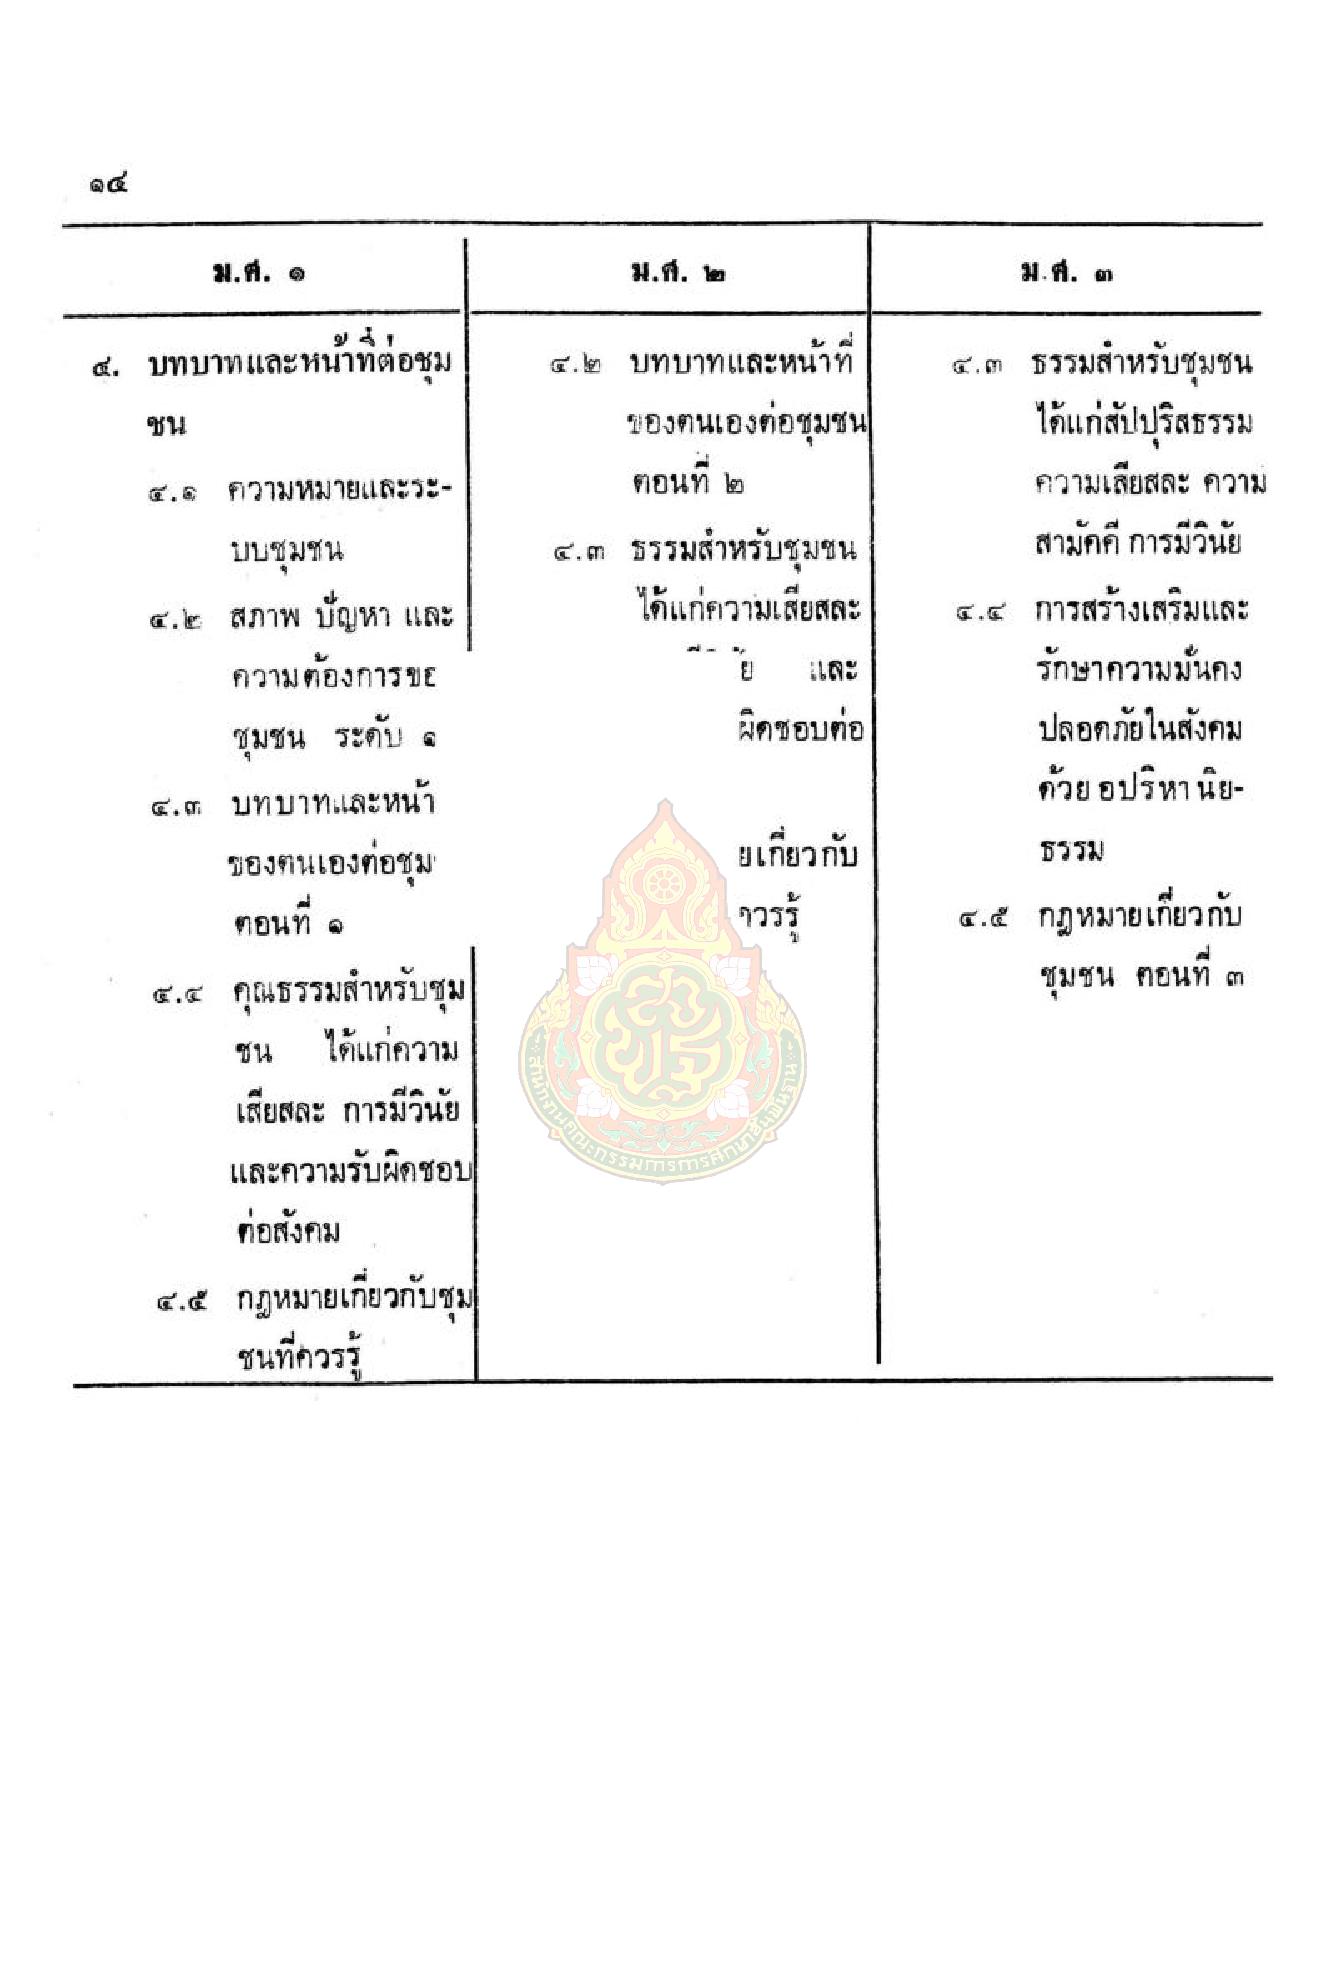 ๑๔
ม.ศ. ๑
ม.ศ. ๒
ม.ศ. ๓
๔. บทบาทและหน้าที่ต่อชุม
ชน
๔.๑ ความหมายและระ-
บบชุมชน
๔.๒ สภาพ ปัญหา และ
ความต้องการขอ
ชุมชน ระดับ ๑
๔.๓ บทบาทและหน้า
ของตนเองต่อชุม
ตอนที่ ๑
๔.๔ คุณธรรมสำหรับชุม
ชน ได้แก่ความ
เสียสละ การมีวินัย
และความรับผิดชอบ
ต่อสังคม
๔.๕ กฎหมายเกี่ยวกับชุม
ชนที่ควรรู้
๔.๒ บทบาทและหน้าที่
ของตนเองต่อชุมชน
ตอนที่ ๒
๔.๓ ธรรมสำหรับชุมชน
ได้แก่ความเสียสละ
ย และ
ผิดชอบต่อ
ยเกี่ยวกับ
ควรรู้
๔.๓ ธรรมสำหรับชุมชน
ได้แก่สัปปุริสธรรม
ความเสียสละ ความ
สามัคคี การมีวินัย
๔.๔ การสร้างเสริมและ
รักษาความมั่นคง
ปลอดภัยในสังคม
ด้วย อปริหานิย-
ธรรม
๔.๕ กฎหมายเกี่ยวกับ
ชุมชน ตอนที่ ๓
สำนักงานคณะกรรมการการศึกษาขั้นพื้นฐาน